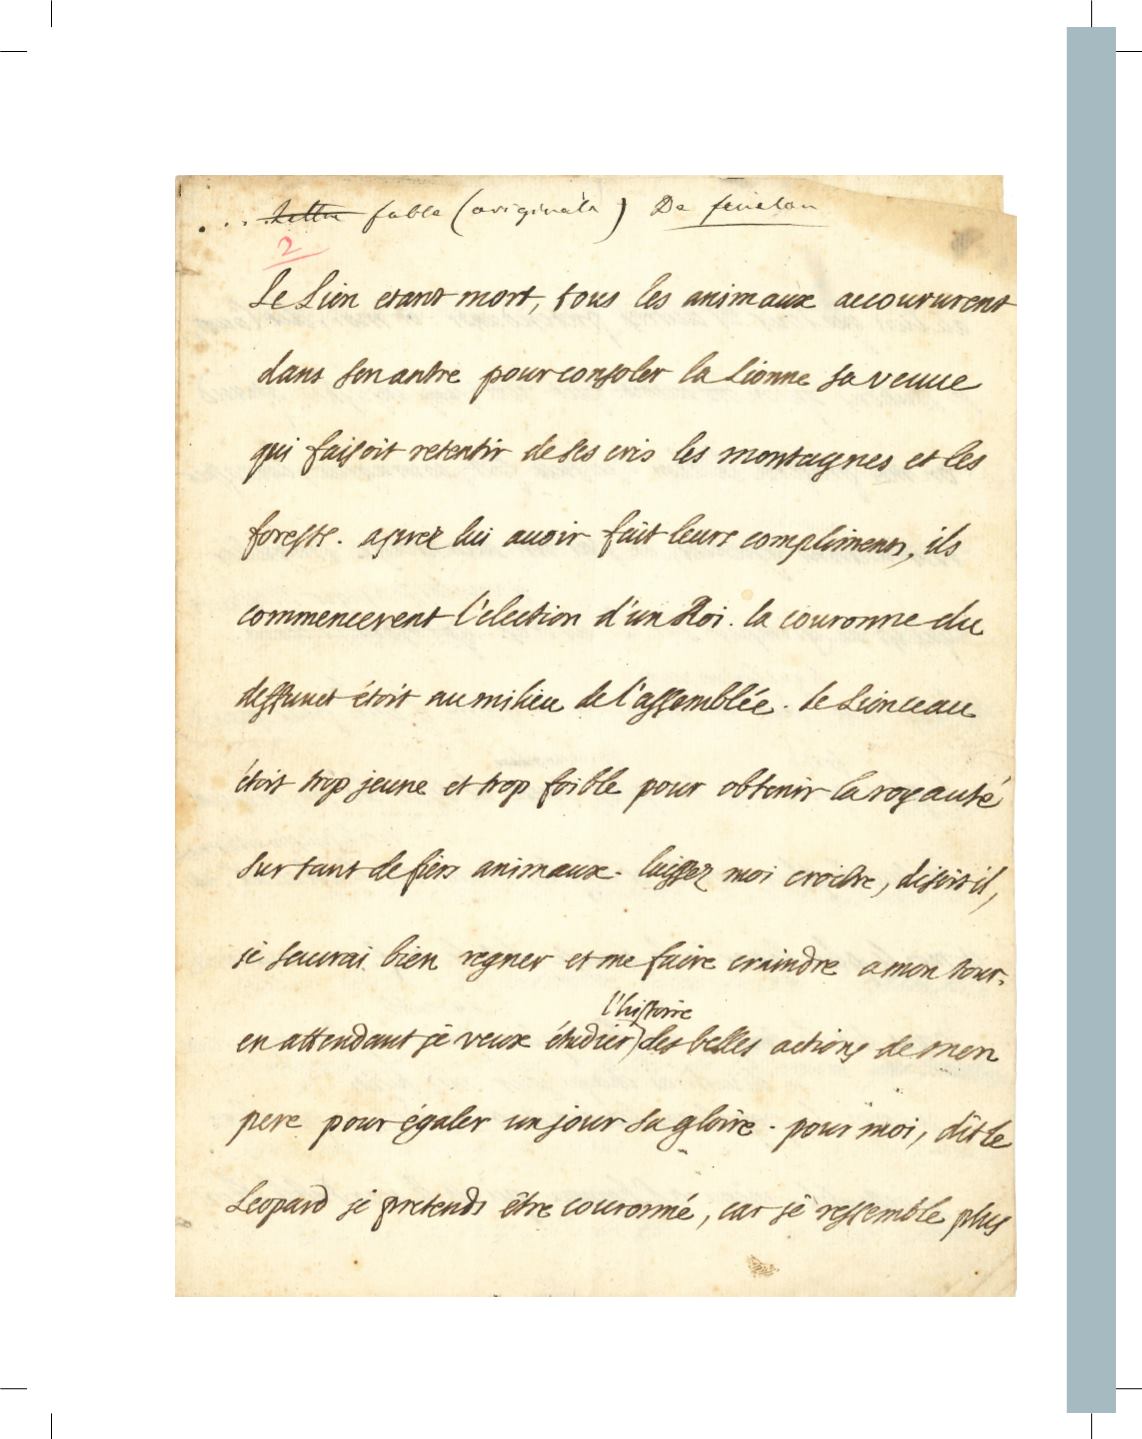 ... ~~Lettre~~ fable (originale) De fenelon
2
Le Lion etant mort, tous les animaux accoururent
dans son antre pour consoler la Lionne sa veuue
qui faisoit retentir de ses cris les montagnes et les
forests. aprez lui auoir fait leurs compliments, ils
commencerent l'election d'un Roi. la couronne du
deffunct étoit au milieu de l'assemblée. le Lionceau
étoit trop jeune et trop foible pour obtenir la royauté
sur tant de fiers animaux. laissez moi croitre, disoit il,
je saurai bien regner et me faire craindre a mon tour.
l'histoire
en attendant je veux étudier des belles actions de mon
pere pour égaler un jour sa gloire. pour moi, dit le
Leopard je pretends être couronné, car je ressemble plus